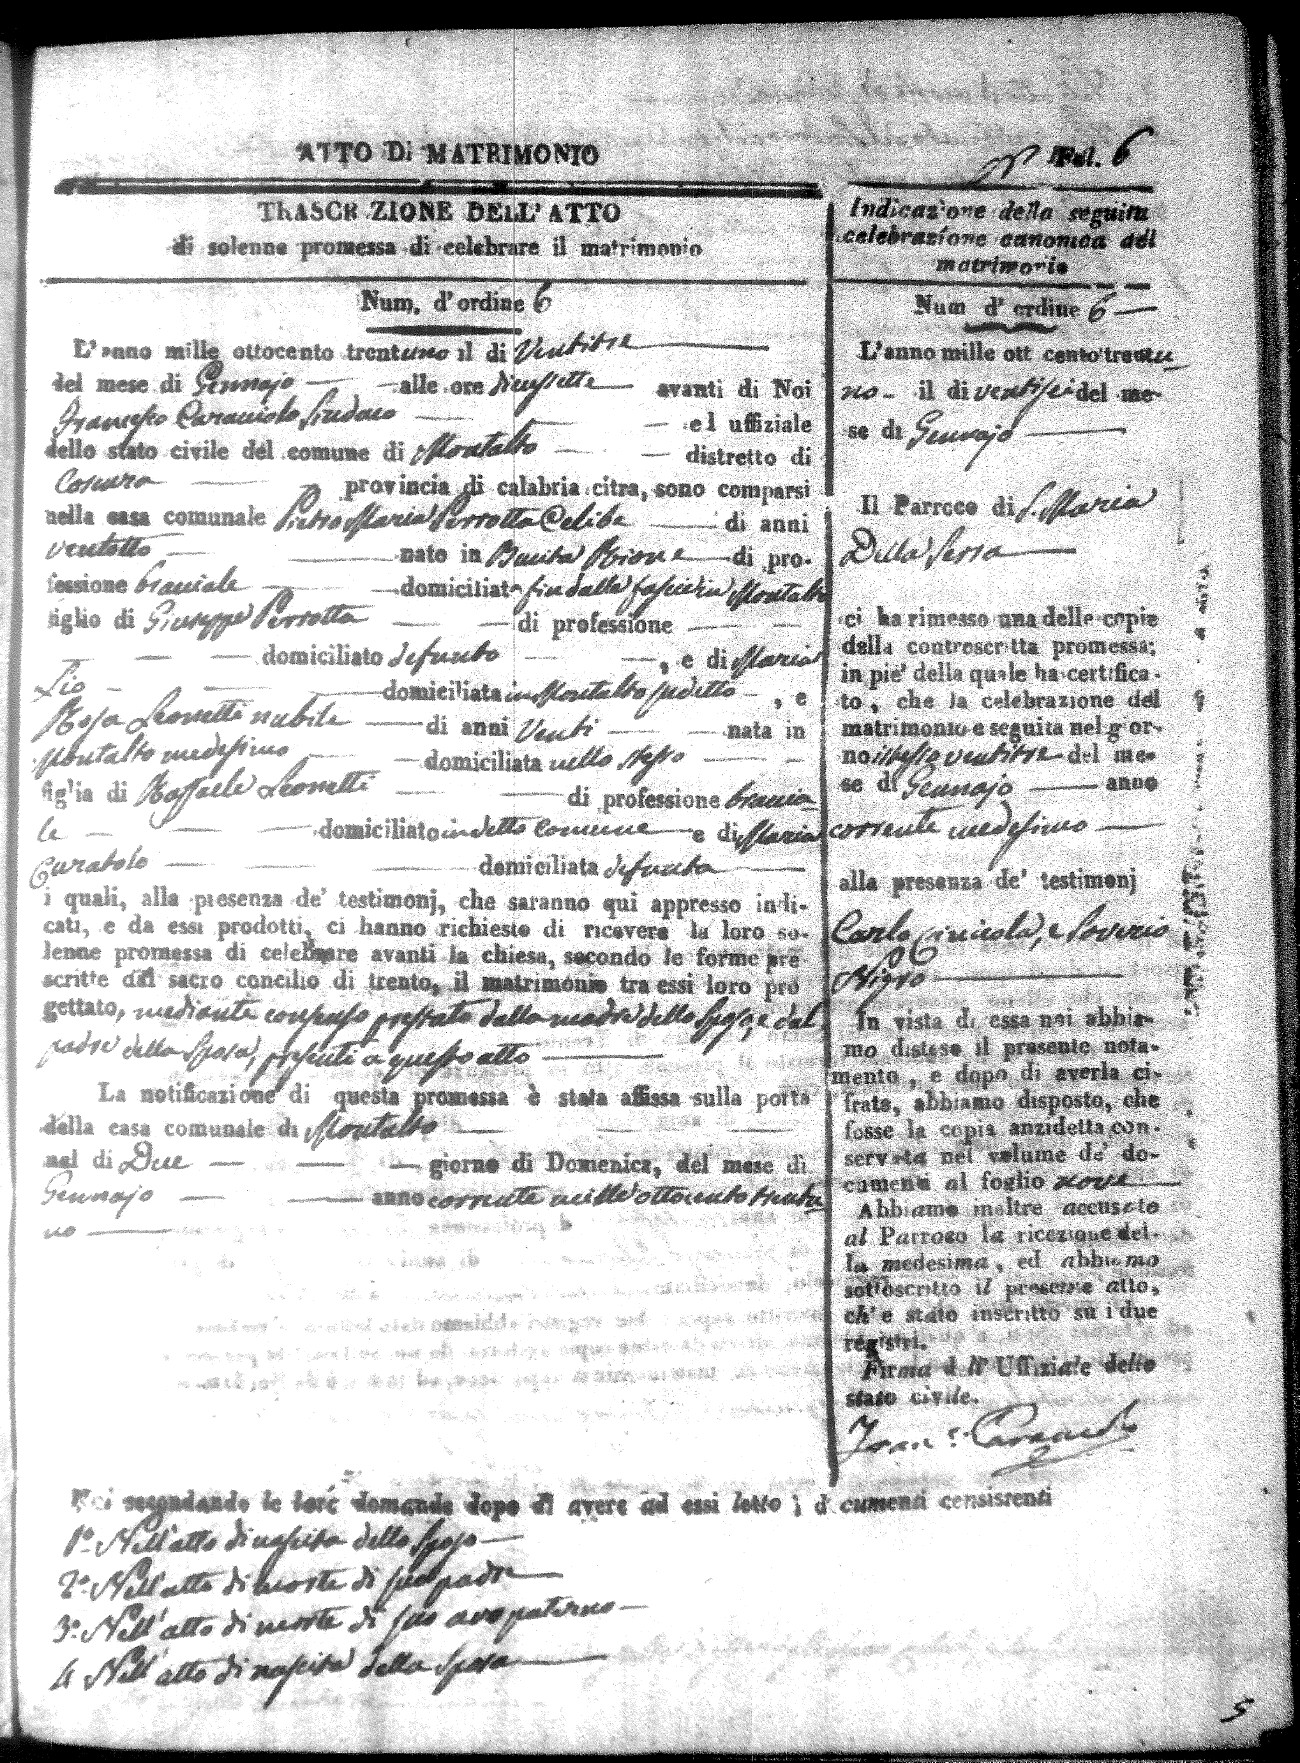 ATTO Di MATRIMONIO
Fol. 6
TRASCRIZIONE DELL' ATTO
di solenne promessa di celebrare il matrimonio
Num. d'ordine 6
L'anno mille ottocento trentuno il di Ventitre
del mese di Gennajo alle ore diecissette avanti di Noi
Francesco Caracciolo Sindaco ed uffiziale
dello stato civile del comune di Montalto distretto di
Cosenza provincia di calabria citra, sono comparsi
nella casa comunale Pietro Maria Perrotta Celibe di anni
ventotto nato in di pro-
fessione braciale domiciliato fin dalla Montalto
figlio di Giuseppe Perrotta di professione
domiciliato defunto , e di Maria
Lio domiciliata in Montalto sudetto , e
Rosa Leonetti nubile di anni Venti nata in
Montalto medesimo domiciliata nello stesso
figlia di Raffaele Leonetti di professione braccia
le domiciliato in detto Comune e di Maria
Curatolo domiciliata defunta
i quali, alla presenza de' testimonj, che saranno qui appresso indi-
cati, e da essi prodotti, ci hanno richiesto di ricevere la loro so-
lenne promessa di celebrare avanti la chiesa, secondo le forme pre
scritte dal sacro concilio di trento, il matrimonio tra essi loro pro
gettato, mediante consenso prestato dalla madre dello Sposo, e dal
padre della Sposa, presenti a questo atto
La notificazione di questa promessa è stata affissa sulla porta
della casa comunale di Montalto
nel di Due giorno di Domenica, del mese di
Gennajo anno corrente mille ottocento trentu
no
Indicazione della seguita
celebrazione canonica del
matrimonio
Num d' ordine 6
L'anno mille ott cento trentu
no il di ventisei del me-
se di Gennajo
Il Parroco di S. Maria
Della Serra
ci ha rimesso una delle copie
della controscritta promessa;
in pie' della quale ha certifica-
to, che la celebrazione del
matrimonio e seguita nel gior-
no istesso ventitre del me-
se di Gennajo anno
corrente medesimo
alla presenza de' testimonj
Carlo e Saverio
Nigro
In vista di essa noi abbia-
mo disteso il presente nota-
mento, e dopo di averla ci-
frata, abbiamo disposto, che
fosse la copia anzidetta con-
servata nel volume de' do-
cumenti al foglio nove
Abbiamo inoltre accusato
al Parroco la ricezione del-
la medesima, ed abbiamo
sottoscritto il presente atto,
ch'e stato inscritto su i due
registri.
Firma dell' Uffiziale dello
stato civile.
Fran.co Caracciolo
Noi secondando le loro domande dopo di avere ad essi letto i documenti consistenti
1.° Nell'atto di nascita dello Sposo
2.° Nell'atto di morte di suo padre
3.° Nell'atto di morte di suo avo paterno
4 Nell'atto di nascita della Sposa
5